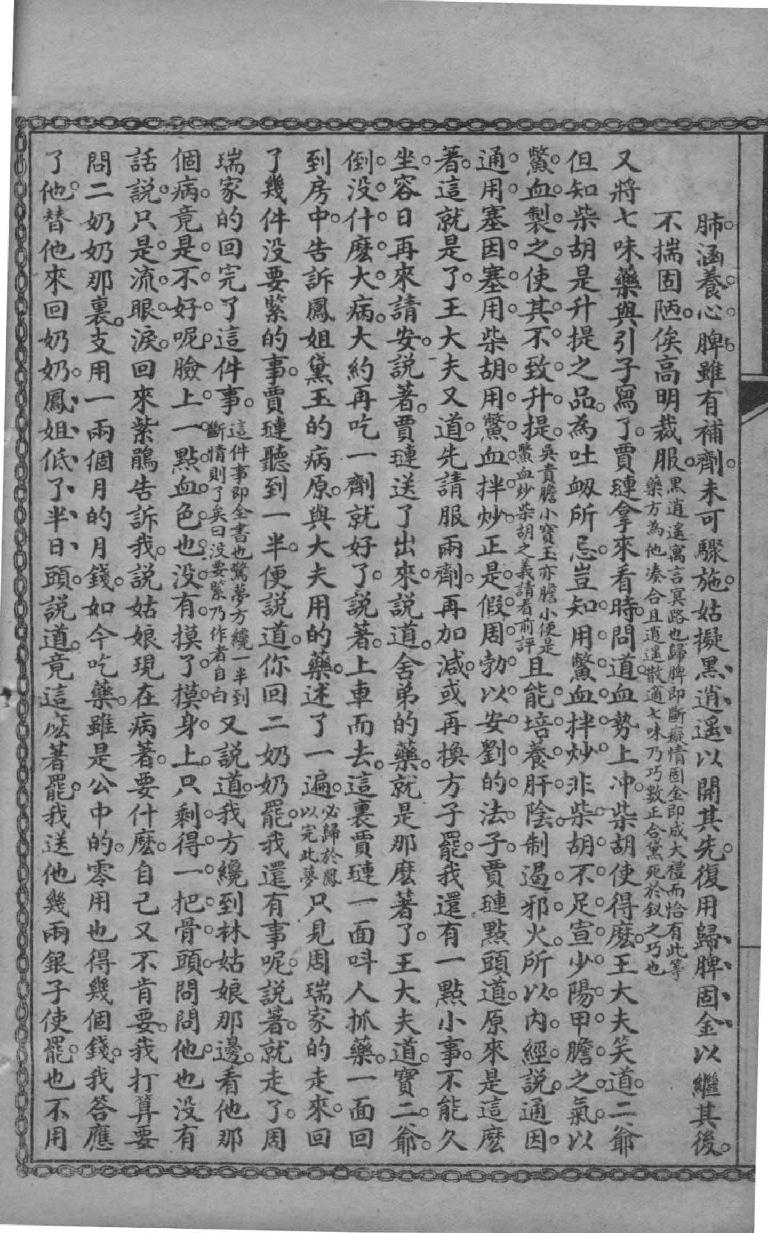 肺涵養心脾雖有補劑未可驟施姑擬黑逍遙以開其先復用歸脾固金以繼其後。
不揣固陋。俟高明裁服。黑逍遙寓言冥路也歸脾即斷癡情固金即成大禮而恰有此等
藥方為他湊合且逍遙散適七味乃巧數正合黛死於釵之巧也
又將七味藥與引子寫了賈璉拿來看時問道血勢上冲柴胡使得麽王大夫笑道二爺
但知柴胡是升提之品。為吐衂所忌豈知用鱉血拌炒非柴胡不足宣少陽甲膽之氣以
鱉血製之使其不致升提。吳貴膽小寶玉亦膽小便是
鱉血炒柴胡之義請看前評且能培養肝陰制遏邪火所以内經說通因
通用塞因塞用柴胡用鱉血拌炒正是假周勃以安劉的法子賈璉點頭道原來是這麽
著這就是了王大夫又道先請服兩劑再加減或再換方子罷我還有一點小事不能久
坐容日再來請安說著賈璉送了出來說道舍弟的藥就是那麽著了王大夫道寶二爺
倒没什麽大病大約再吃一劑就好了說著上車而去這裏賈璉一面呌人抓藥一面回
到房中告訴鳳姐黛玉的病原與大夫用的藥述了一遍必歸於鳳
以完此夢只見周瑞家的走來回
了幾件没要緊的事賈璉聽到一半便說道你回二奶奶罷我還有事呢說著就走了周
瑞家的回完了這件事。這件事即全書也驚夢方纔一半到
斷情則了矣曰没要緊乃作者自白又說道我方纔到林姑娘那邊看他那
個病竟是不好呢臉上一點血色也没有摸了摸身上只剩得一把骨頭問問他也没有
話說只是流眼淚回來紫鵑告訴我說姑娘現在病著要什麽自己又不肯要我打算要
問二奶奶那裏支用一兩個月的月錢如今吃藥雖是公中的零用也得幾個錢我答應
了他替他來回奶奶鳳姐低了半日頭說道竟這麽著罷我送他幾兩銀子使罷也不用